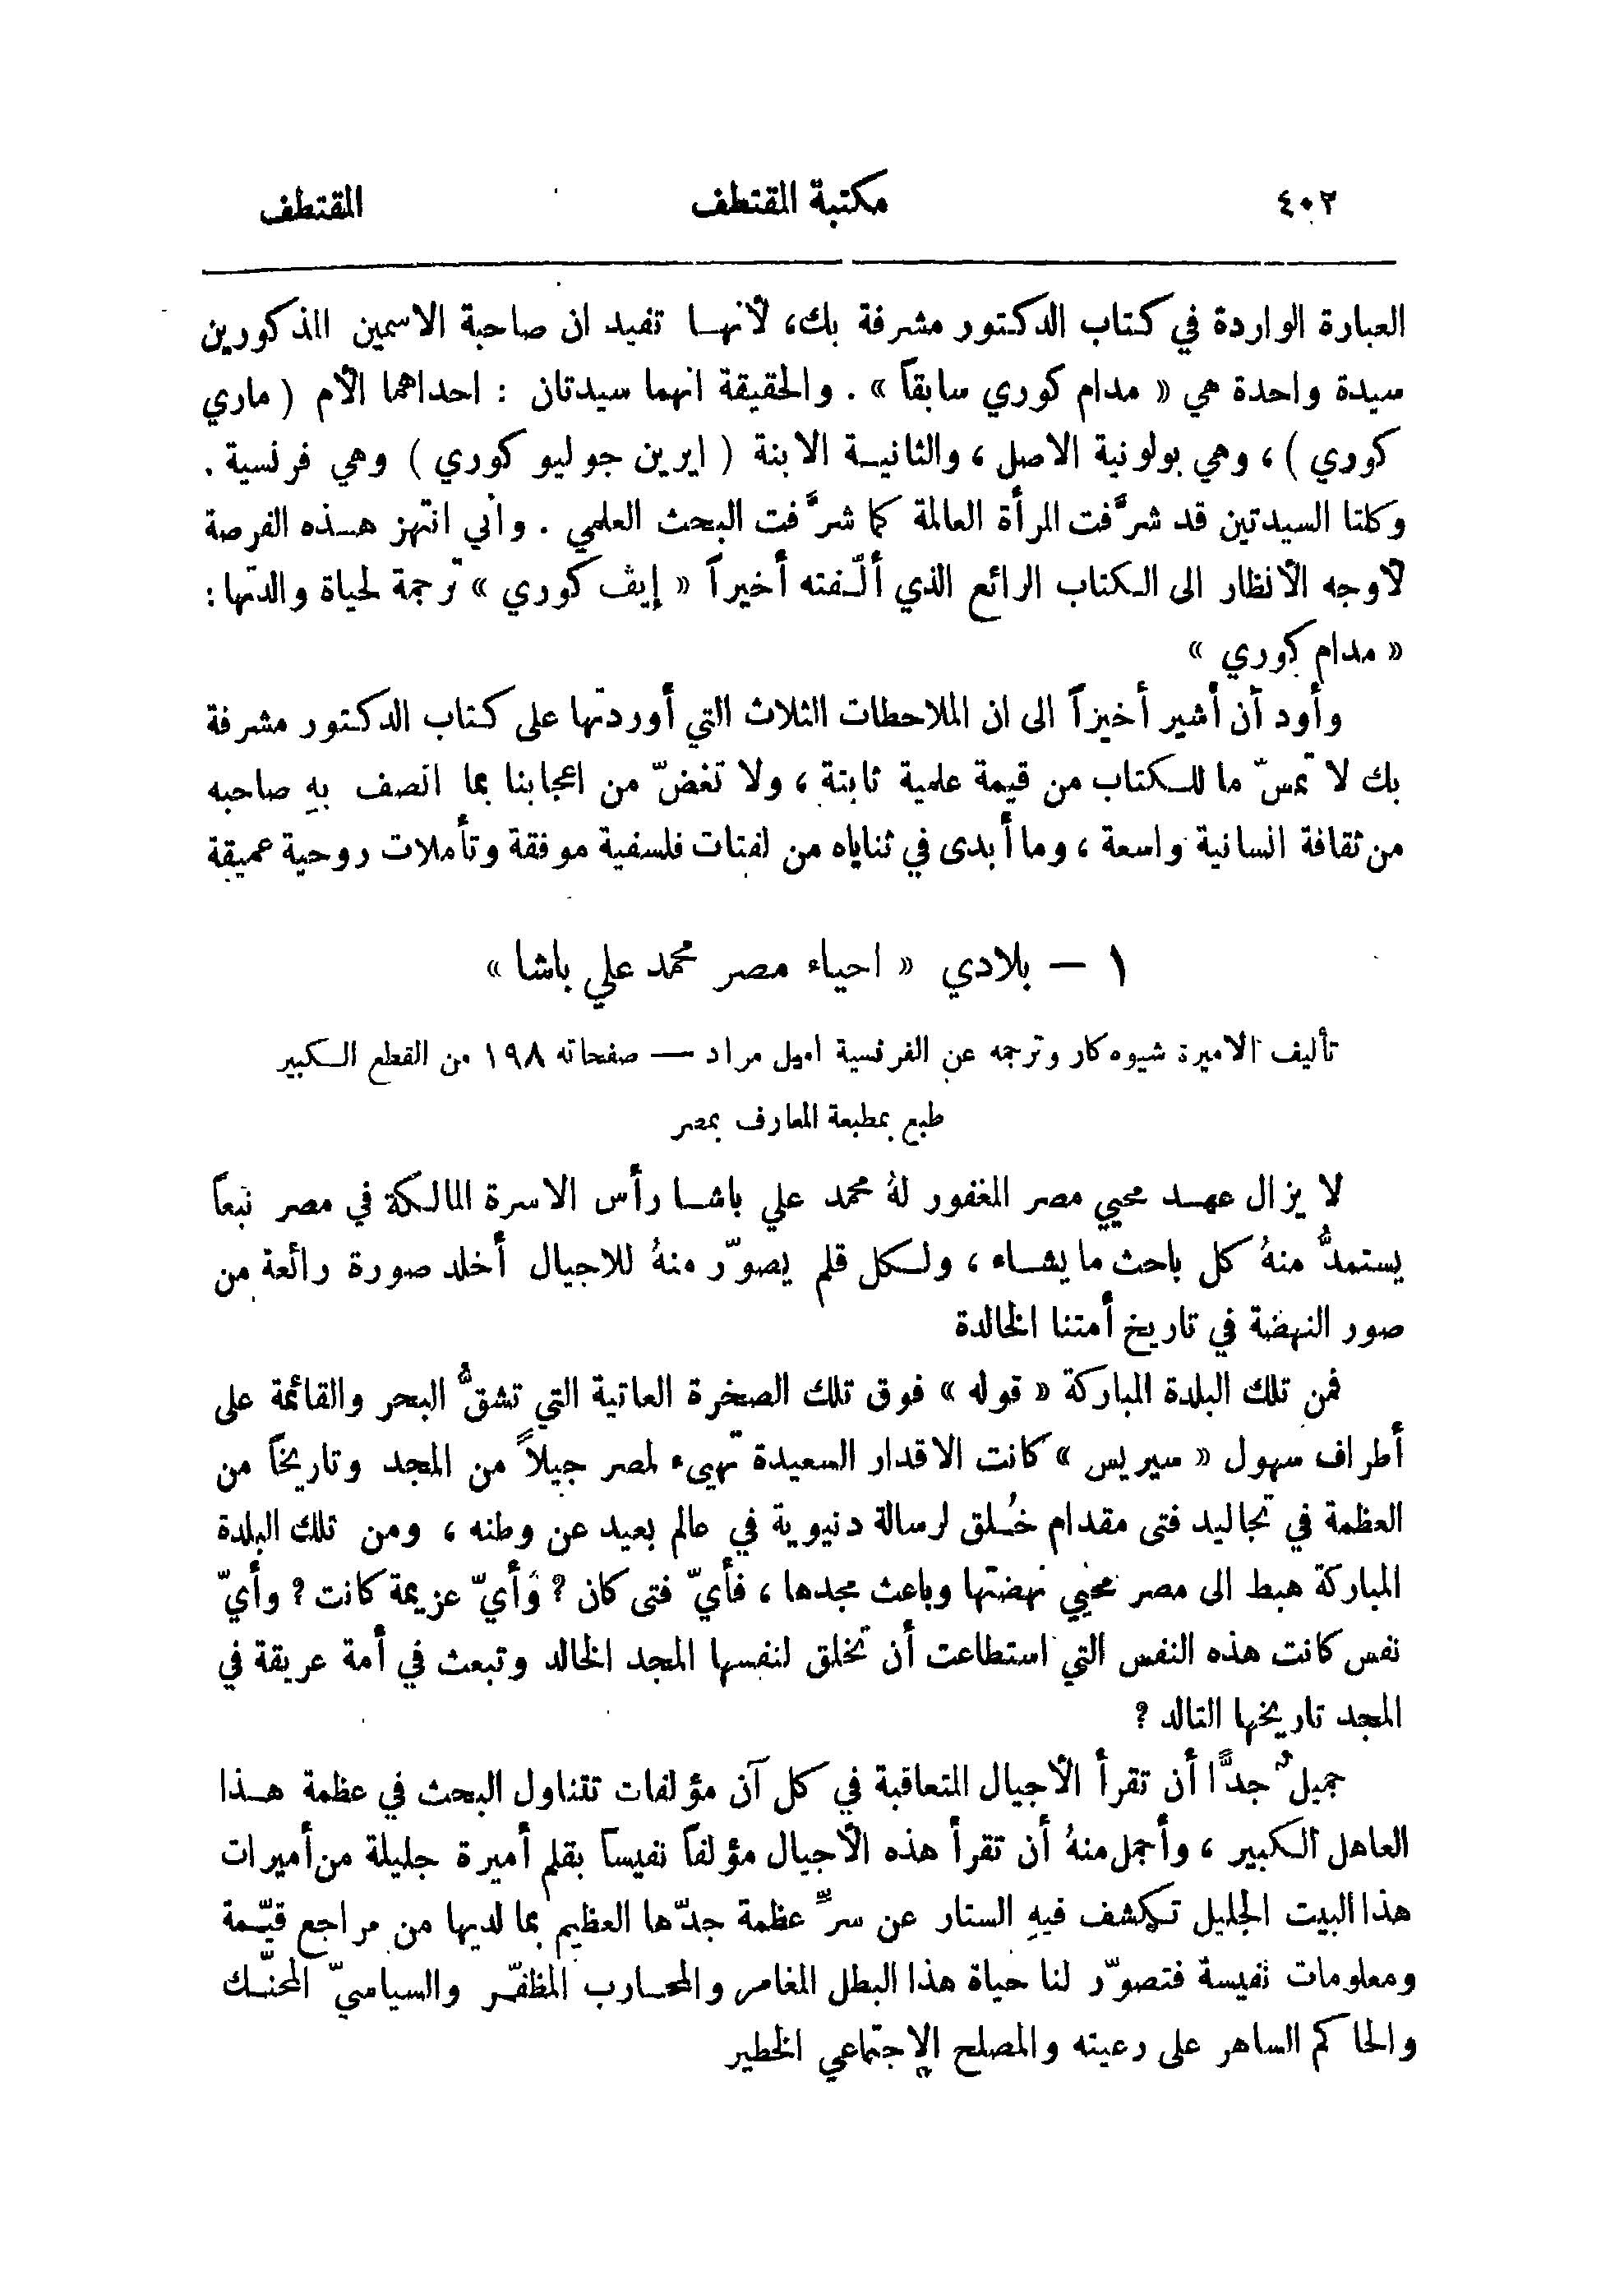 ٤٠٢ مكتبة المقتطف المقتطف
العبارة الواردة في كتاب الدكتور مشرفة بك، لأنها تفيد ان صاحبة الاسمين المذكورين
سيدة واحدة هي « مدام كوري سابقاً » . والحقيقة انهما سيدتان : احداهما الأم ( ماري
كوري ) ، وهي بولونية الاصل ، والثانية الابنة ( ايرين جوليو كوري ) وهي فرنسية .
وكلتا السيدتين قد شرَّفت المرأة العالمة كما شرَّفت البحث العلمي . واني انتهز هذه الفرصة
لأوجه الأنظار الى الكتاب الرائع الذي ألّفته أخيراً « إيڤ كوري » ترجمة لحياة والدتها :
« مدام كوري »
وأود أن أشير أخيراً الى ان الملاحظات الثلاث التي أوردتها على كتاب الدكتور مشرفة
بك لا تمسّ ما للكتاب من قيمة علمية ثابتة ، ولا تغضّ من اعجابنا بما اتصف بهِ صاحبه
من ثقافة انسانية واسعة ، وما أبدى في ثناياه من لفتات فلسفية موفقة وتأملات روحية عميقة
١ — بلادي « احياء مصر محمد علي باشا »
تأليف الاميرة شيوه كار وترجمه عن الفرنسية اميل مراد — صفحاته ١٩٨ من القطع الكبير
طبع بمطبعة المعارف بمصر
لا يزال عهد محيي مصر المغفور لهُ محمد علي باشا رأس الاسرة المالكة في مصر نبعاً
يستمدُّ منهُ كل باحث ما يشاء ، ولكل قلم يصوّر منهُ للاجيال أخلد صورة رائعة من
صور النهضة في تاريخ أمتنا الخالدة
فمن تلك البلدة المباركة « قوله » فوق تلك الصخرة العاتية التي تشقُّ البحر والقائمة على
أطراف سهول « سيريس » كانت الاقدار السعيدة تهيىء لمصر جيلاً من المجد وتاريخاً من
العظمة في تجاليد فتى مقدام خُلق لرسالة دنيوية في عالم بعيد عن وطنه ، ومن تلك البلدة
المباركة هبط الى مصر محيي نهضتها وباعث مجدها ، فأيّ فتى كان ؟ وأيّ عزيمة كانت ؟ وأيّ
نفس كانت هذه النفس التي استطاعت أن تخلق لنفسها المجد الخالد وتبعث في أمة عريقة في
المجد تاريخها التالد ؟
جميلٌ جدًّا أن تقرأ الأجيال المتعاقبة في كل آن مؤلفات تتناول البحث في عظمة هذا
العاهل الكبير ، وأجمل منهُ أن تقرأ هذه الأجيال مؤلفاً نفيساً بقلم أميرة جليلة من أميرات
هذا البيت الجليل تكشف فيهِ الستار عن سرِّ عظمة جدّها العظيم بما لديها من مراجع قيّمة
ومعلومات نفيسة فتصوّر لنا حياة هذا البطل المغامر والمحارب المظفّر والسياسيّ المحنّك
والحاكم الساهر على رعيته والمصلح الإجتماعي الخطير